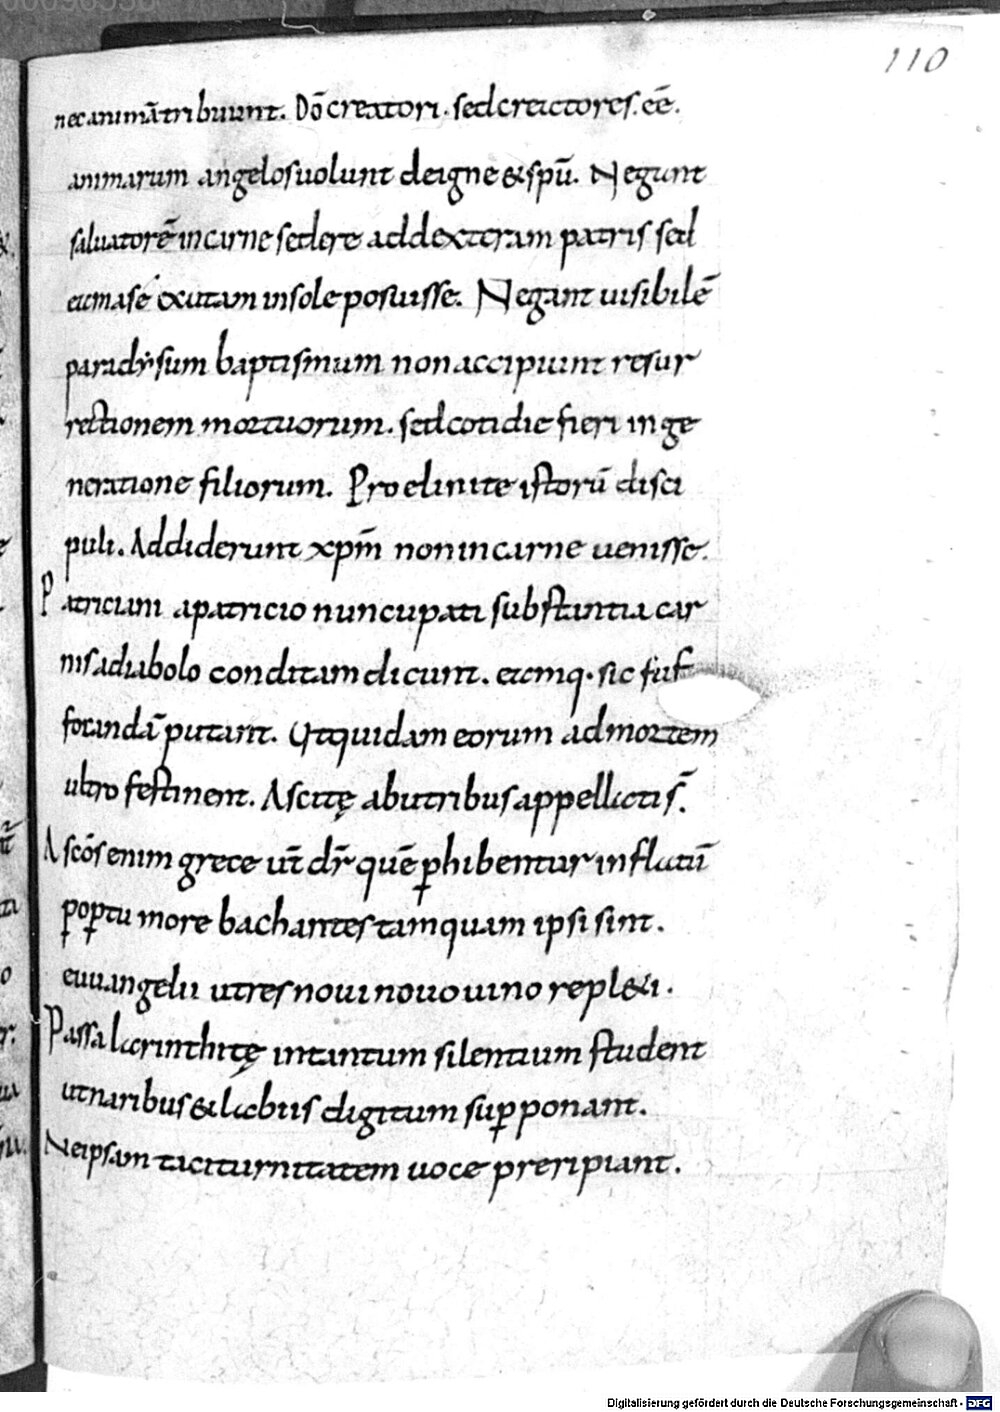 110
nec animā tribuunt. Dō creatori. sed creatores. eē.
animarum angelos uolunt de igne & spū. Negant
saluatorē in carne sedere ad dexteram patris sed
eum a se exutam in sole posuisse. Negant uisibilē
paradysum baptismum non accipiunt resur
rectionem mortuorum. sed cotidie fieri in ge
neratione filiorum. Proclinite istorū disci
puli. Addiderunt xpm̄ non in carne uenisse.
Patriciani a patricio nuncupati substantia car
nis a diabolo conditam dicunt. eamq. sic fuf
focandā putant. Ut quidam eorum ad mortem
ultro festinent. Ascitę ab utribus appellatis.
Ascōs enim grece ut̄ dr̄ quē ꝑhibentur inflatū
ꝑ oꝑtu more bachantes tamquam ipsi sint.
euuangelii utres noui nouo uino repl&i.
Passalorinthitę in tantum silentium student
ut naribus & labiis digitum suꝑponant.
Ne ipsam taciturnitatem uoce preripiant.
Digitalisierung gefördert durch die Deutsche Forschungsgemeinschaft - DFG